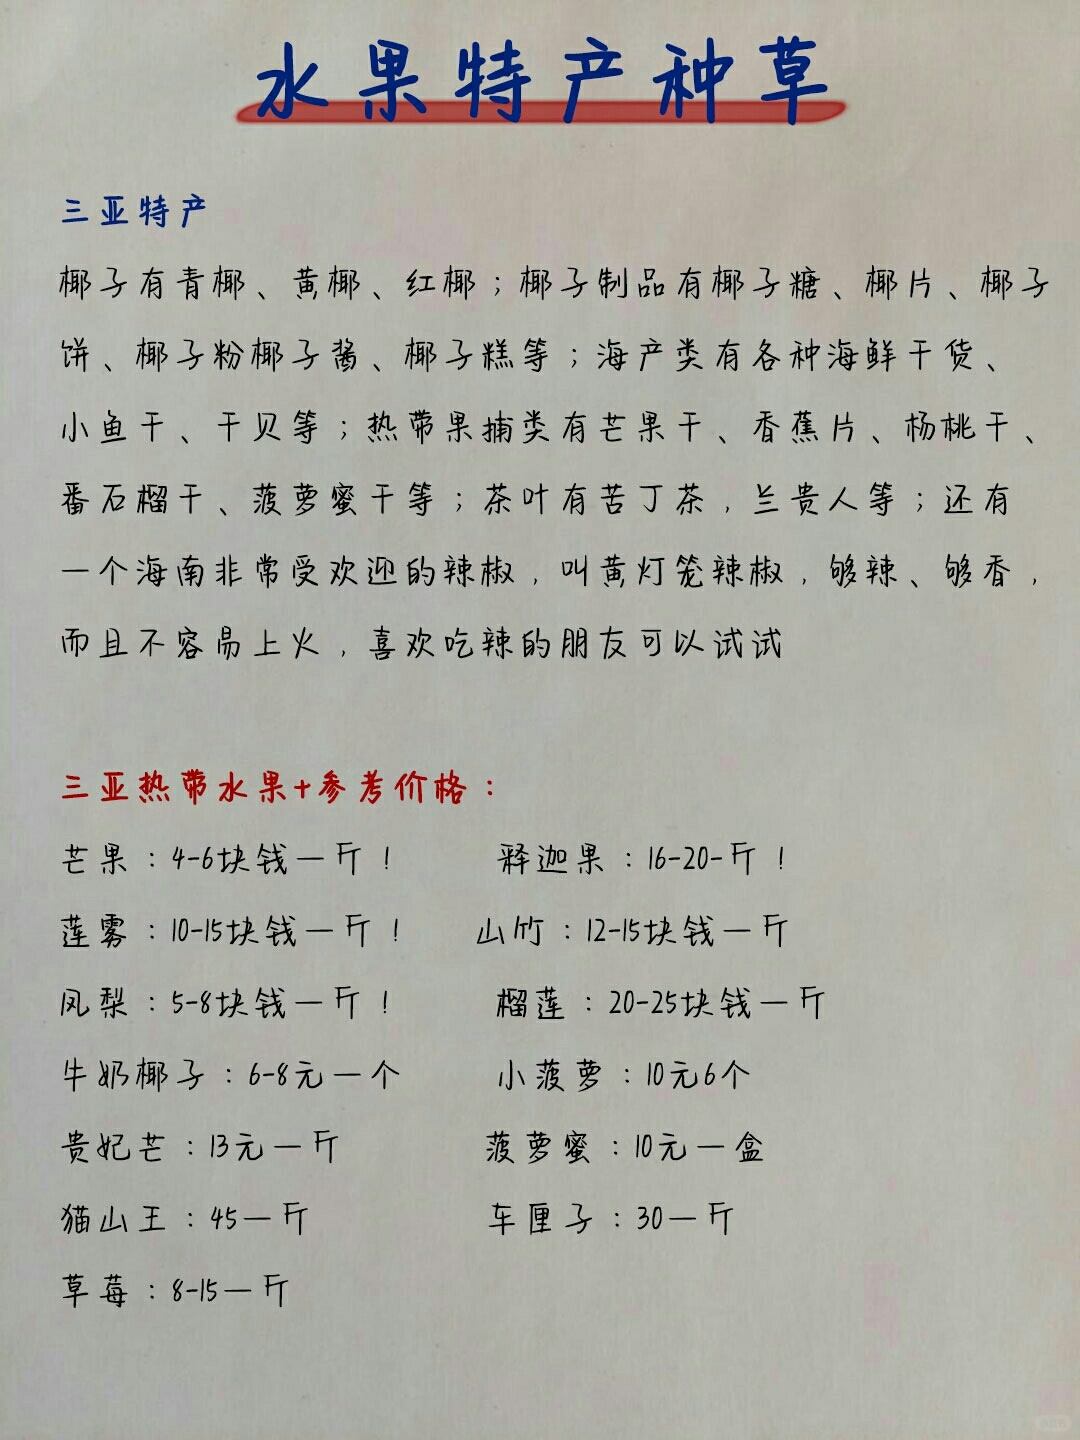 水果特产种草
三亚特产
椰子有青椰、黄椰、红椰；椰子制品有椰子糖、椰片、椰子
饼、椰子粉椰子酱、椰子糕等；海产类有各种海鲜干货、
小鱼干、干贝等；热带果捕类有芒果干、香蕉片、杨桃干、
番石榴干、菠萝蜜干等；茶叶有苦丁茶，兰贵人等；还有
一个海南非常受欢迎的辣椒，叫黄灯笼辣椒，够辣、够香，
而且不容易上火，喜欢吃辣的朋友可以试试
三亚热带水果+参考价格：
芒果：4-6块钱一斤！ 释迦果：16-20-斤！
莲雾：10-15块钱一斤！ 山竹：12-15块钱一斤
凤梨：5-8块钱一斤！ 榴莲：20-25块钱一斤
牛奶椰子：6-8元一个 小菠萝：10元6个
贵妃芒：13元一斤 菠萝蜜：10元一盒
猫山王：45一斤 车厘子：30一斤
草莓：8-15一斤